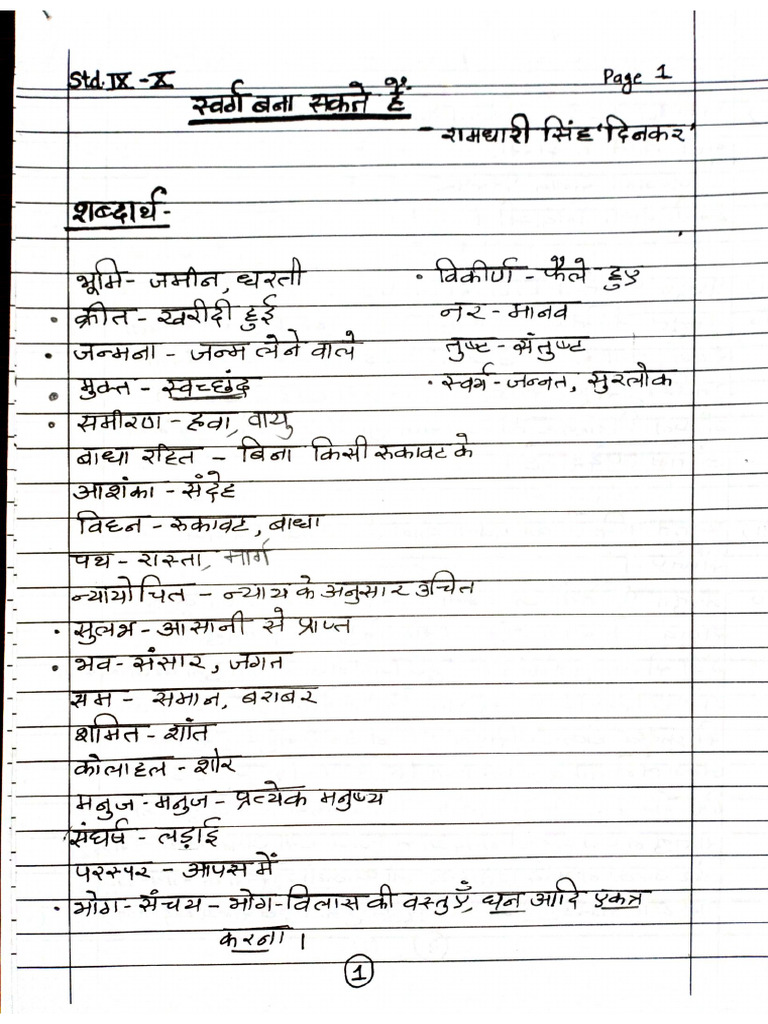 Std. IX - X
Page 1
स्वर्ग बना सकते हैं
- रामधारी सिंह 'दिनकर'
शब्दार्थ -
भूमि - जमीन, धरती
• क्रीत - खरीदी हुई
• जन्मना - जन्म लेने वाले
• मुक्त - स्वच्छंद
• समीरण - हवा, वायु
• विकीर्ण - फैले हुए
नर - मानव
तुष्ट - संतुष्ट
• स्वर्ग - जन्नत, सुरलोक
बाधा रहित - बिना किसी रुकावट के
आशंका - संदेह
विघ्न - रुकावट, बाधा
पथ - रास्ता, मार्ग
न्यायोचित - न्याय के अनुसार उचित
• सुलभ - आसानी से प्राप्त
• भव - संसार, जगत
सम - समान, बराबर
शमित - शांत
कोलाहल - शोर
मनुज-मनुज - प्रत्येक मनुष्य
संघर्ष - लड़ाई
परस्पर - आपस में
• भोग-संचय - भोग-विलास की वस्तुएँ, धन आदि एकत्र
करना ।
1